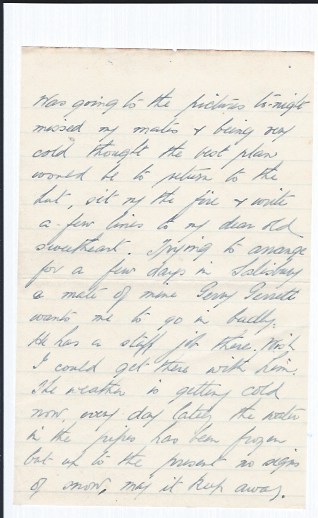 Was going to the pictures to-night
missed my mates & being very
cold thought the best plan
would be to return to the
hut, sit by the fire & write
a few lines to my dear old
sweetheart. Trying to arrange
for a few days in Salisbury
a mate of mine Perry
wants me to go in badly.
He has a staff job there. Wish
I could get there with him.
The weather is getting cold
now, every day lately the water
in the pipes has been frozen
but up to the present no signs
of snow, may it keep away.